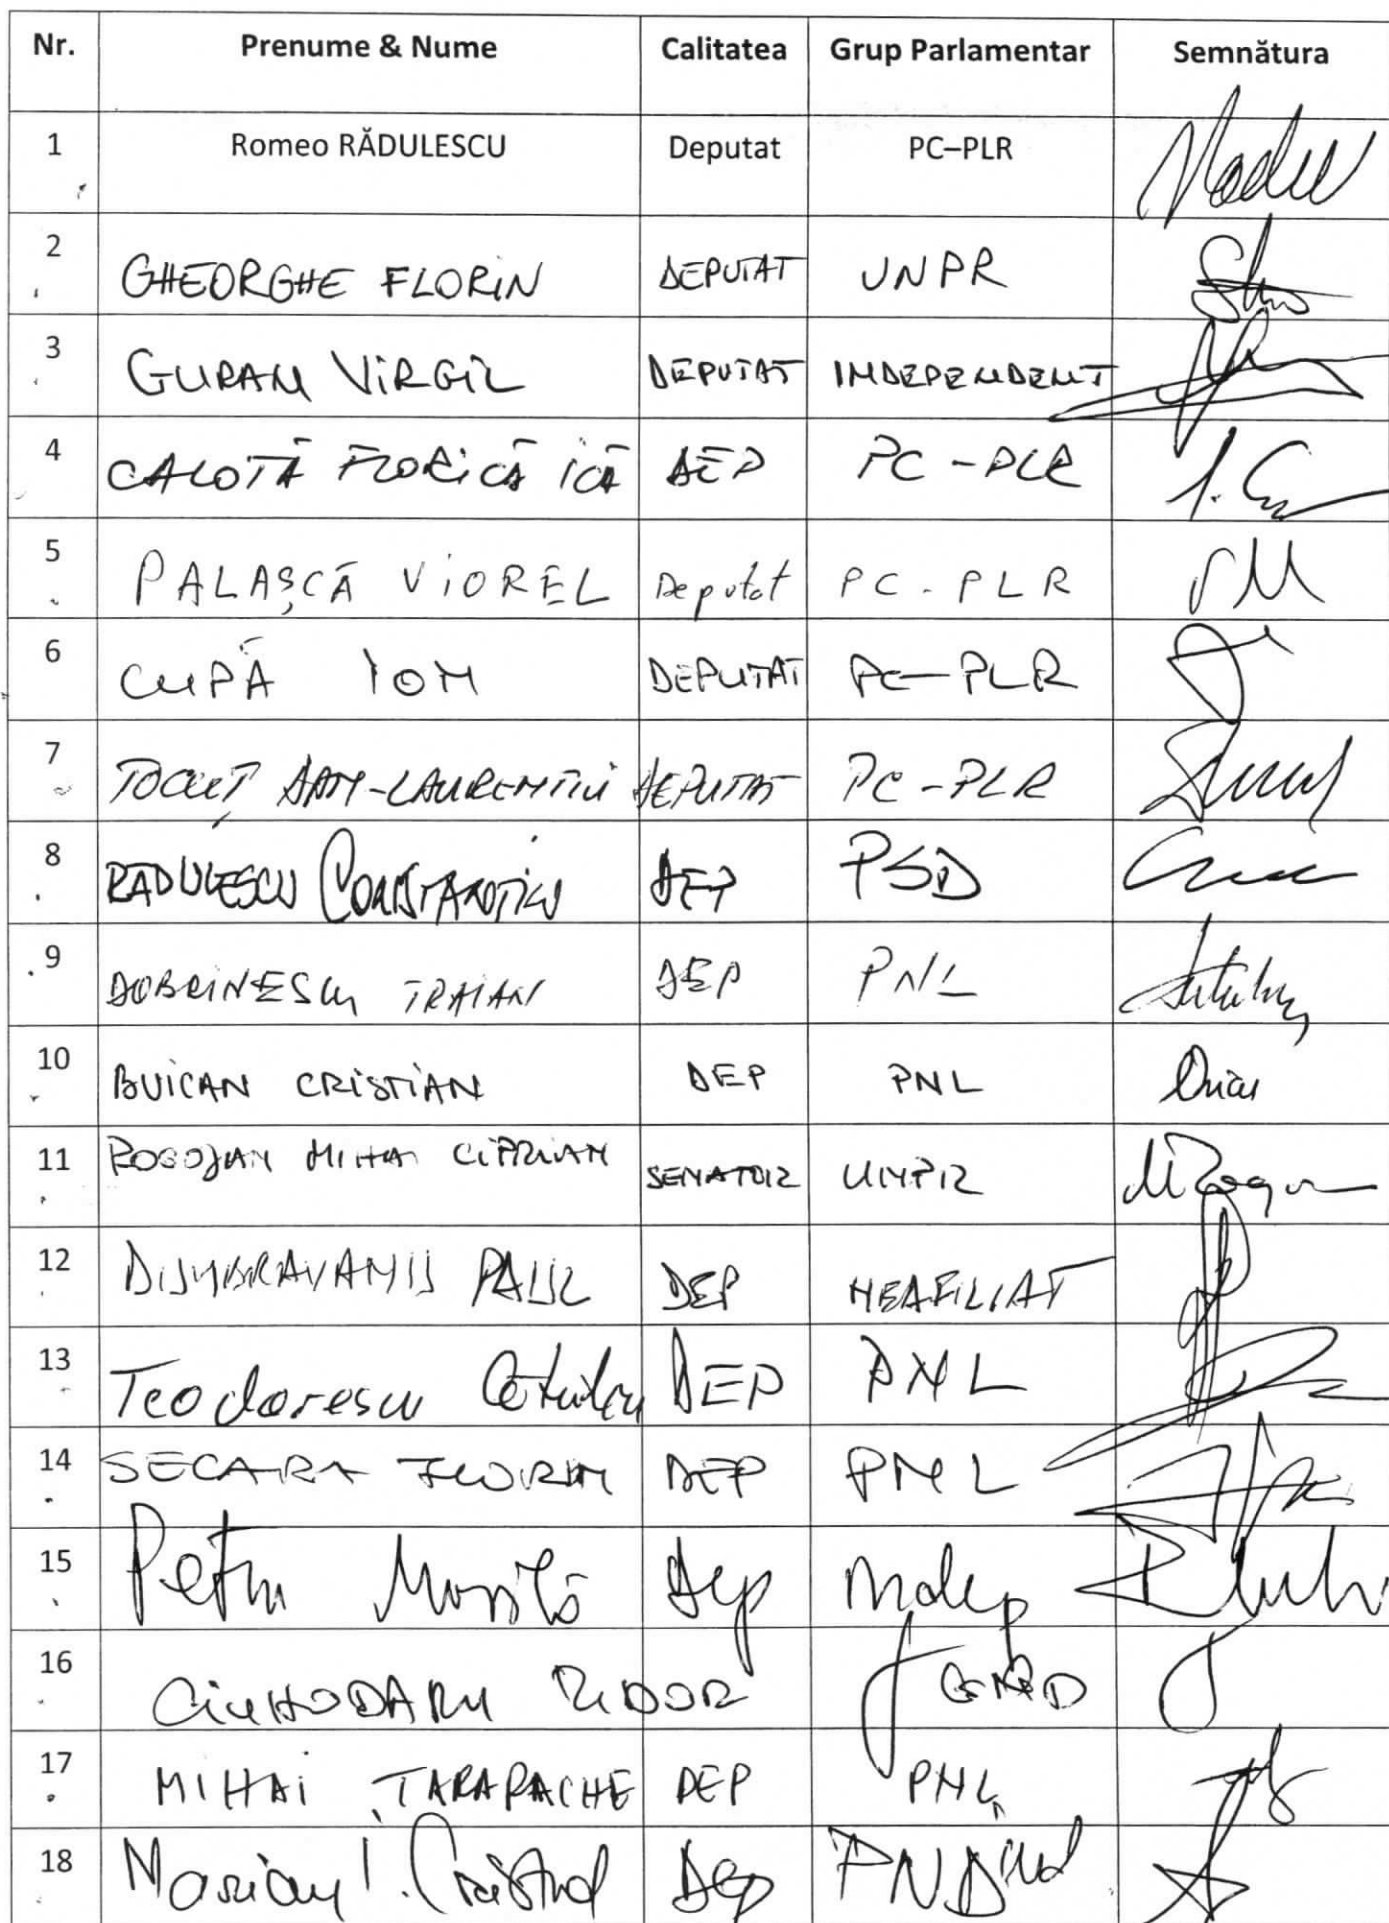 Nr. Prenume & Nume Calitatea Grup Parlamentar Semnătura
1 Romeo RĂDULESCU Deputat PC–PLR
2 GHEORGHE FLORIN DEPUTAT UNPR
3 GURAN VIRGIL DEPUTAT INDEPENDENT
4 CALOTĂ FLORICĂ ICĂ DEP PC-PLR
5 PALAȘCĂ VIOREL Deputat PC-PLR
6 CUPĂ ION DEPUTAT PC-PLR
7 TOCUȚ DAN-LAURENȚIU DEPUTAT PC-PLR
8 RADULESCU CONSTANTIN DEP PSD
9 DOBRINESCU TRAIAN DEP PNL
10 BUICAN CRISTIAN DEP PNL
11 ROGOJAN MIHAI CIPRIAN SENATOR UNPR
12 DUMBRAVANU PAUL DEP NEAFILIAT
13 Teodorescu Cătălin DEP PNL
14 SECARA FLORIN DEP PNL
15 Petru Movilă Dep Indep
16 CIUHODARU TUDOR
17 MIHAI TARARACHE DEP PNL
18 Dep